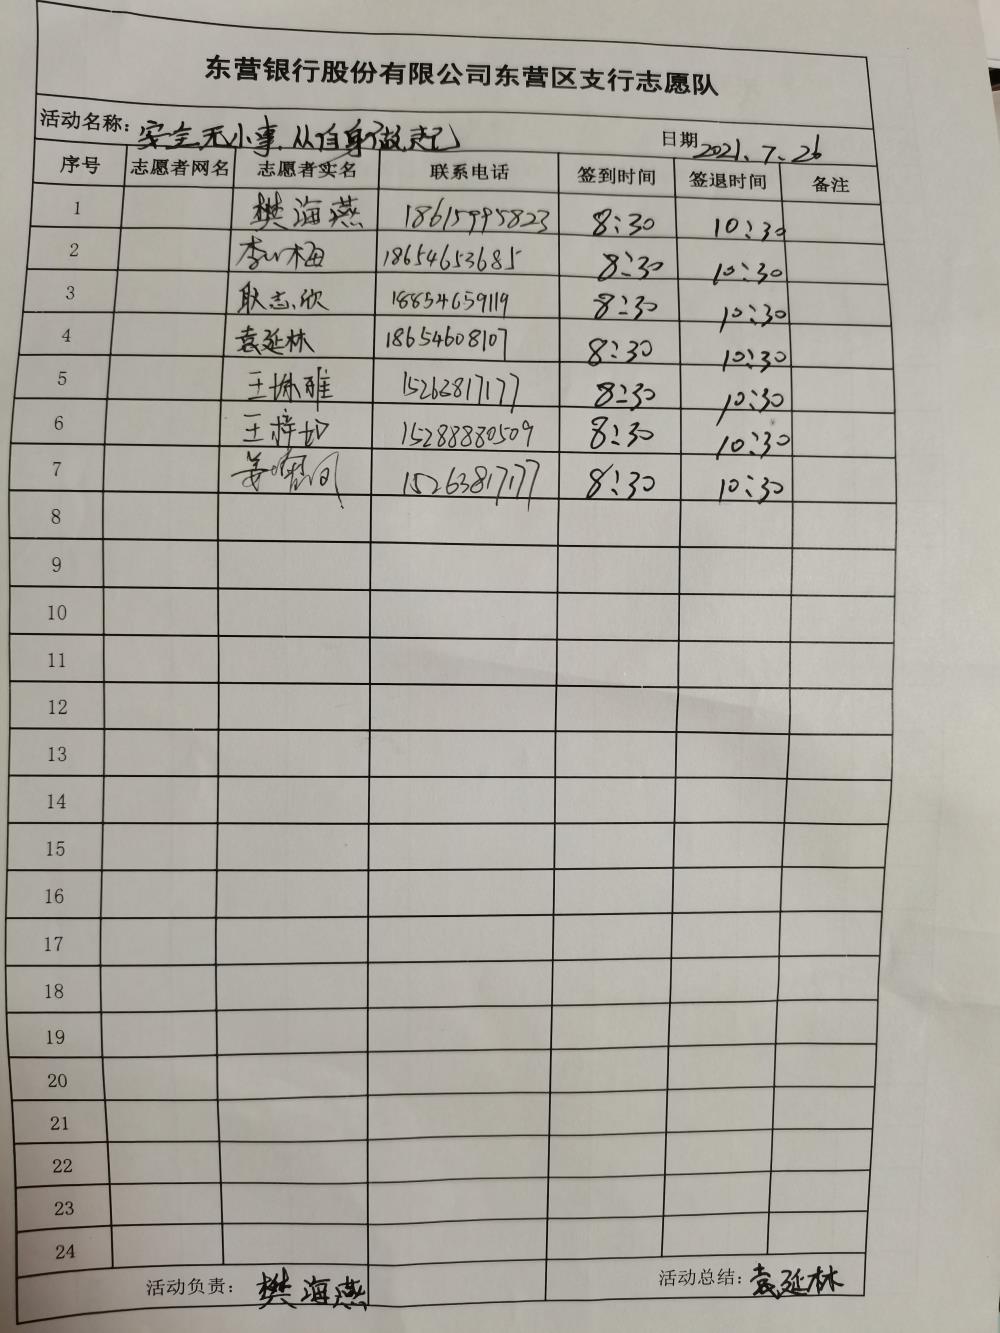 东营银行股份有限公司东营区支行志愿队
活动名称：安全无小事,从自身做起 日期 2021.7.26
序号 志愿者网名 志愿者实名 联系电话 签到时间 签退时间 备注
1 樊海燕 18615995823 8:30 10:30
2 18654653685 8:30 10:30
3 耿志欣 18854659119 8:30 10:30
4 袁延林 18654608107 8:30 10:30
5 15263817177 8:30 10:30
6 王梓 15288880509 8:30 10:30
7 姜 15263817177 8:30 10:30
8
9
10
11
12
13
14
15
16
17
18
19
20
21
22
23
24
活动负责：樊海燕 活动总结：袁延林